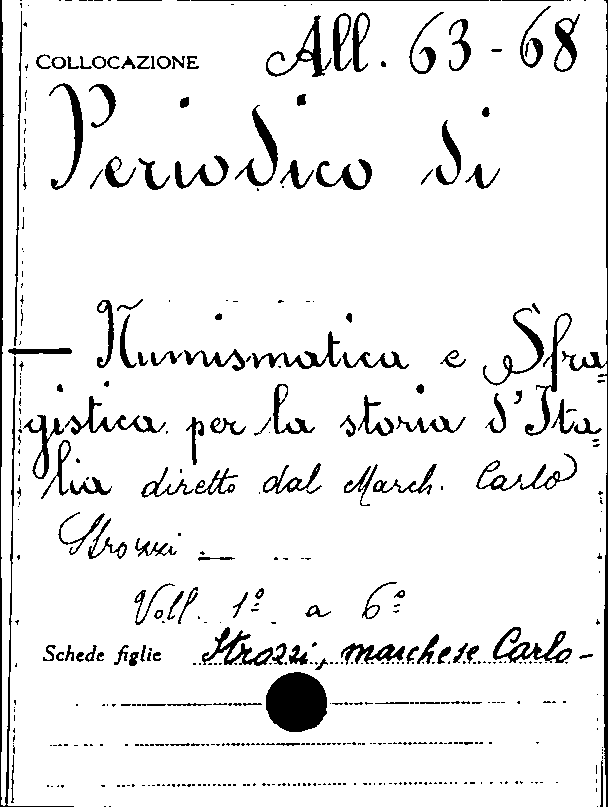 COLLOCAZIONE All. 63-68
Periodico di
— Numismatica e Sfra=
gistica per la storia d'Ita=
lia diretto dal March. Carlo
Strozzi. —
Voll. 1º a 6º
Schede figlie Strozzi, marchese Carlo-